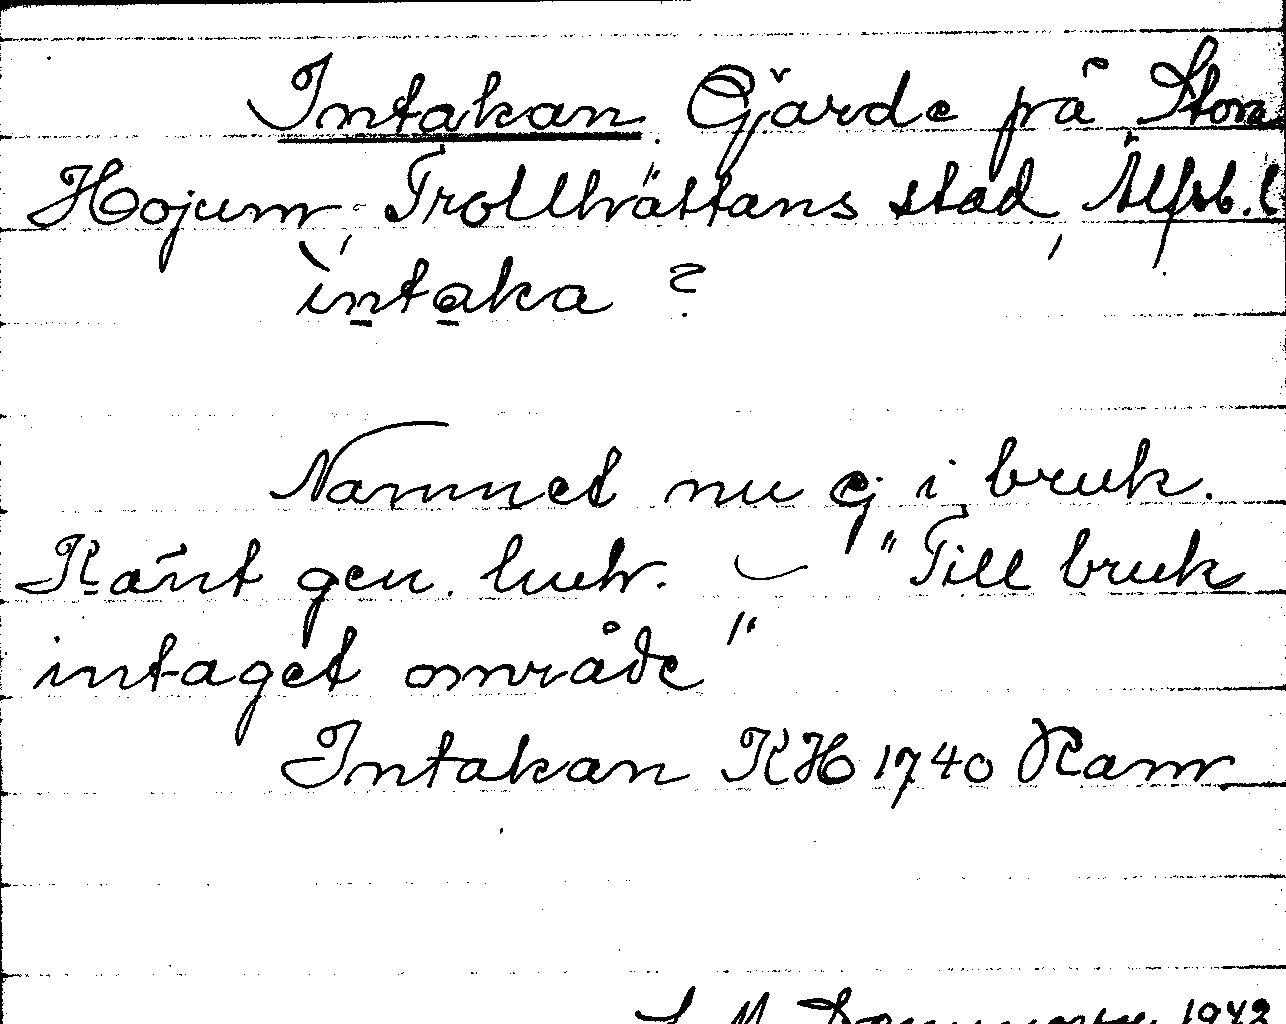 Intakan. Gjärde på Stora
Hojum, Trollhättans stad, Älfsb. l
ìntaka ?
Namnet nu ej i bruk.
Känt gen. huh. — "Till bruk
intaget område"
Intakan KH 1740 Ram
1942